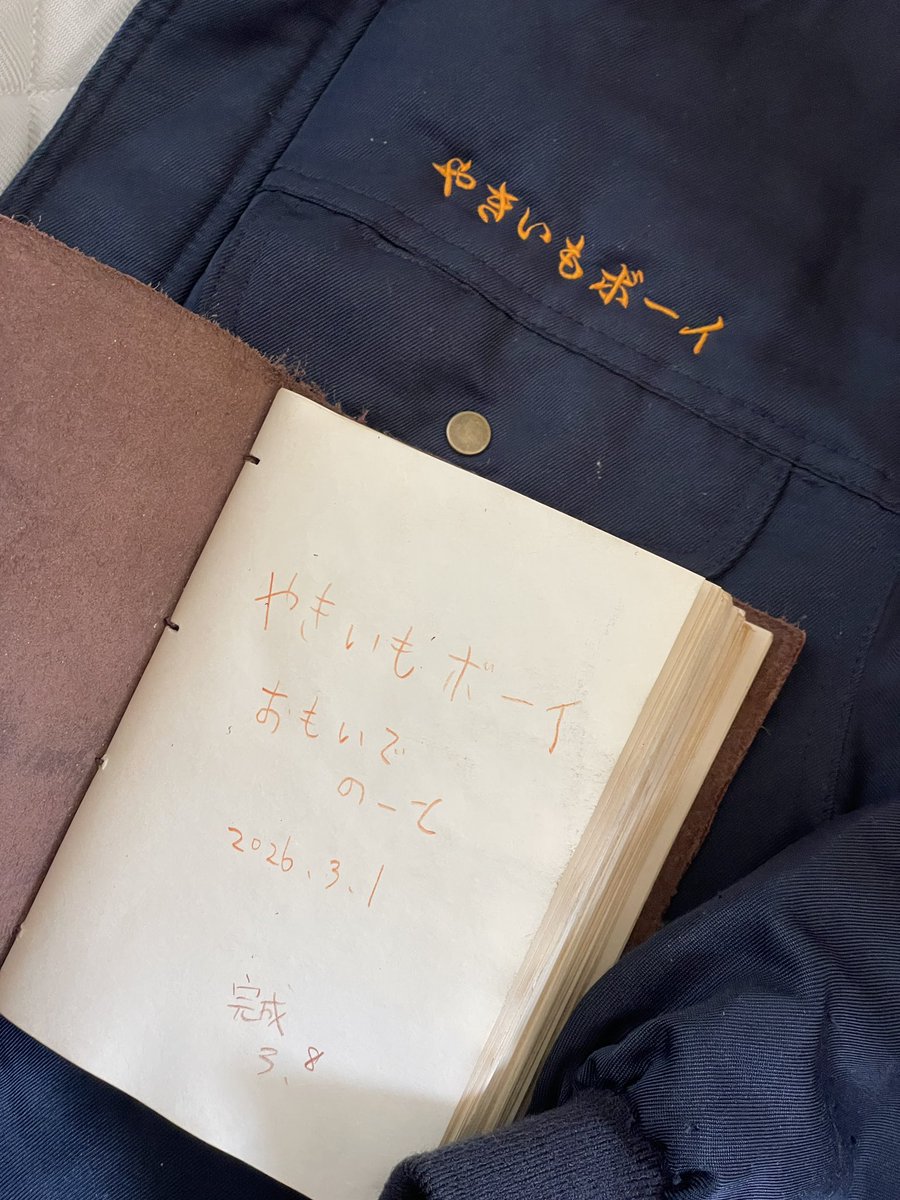 やきいもボーイ
やきいもボーイ
おもいで
のーと
2026.3.1
完成
3.8